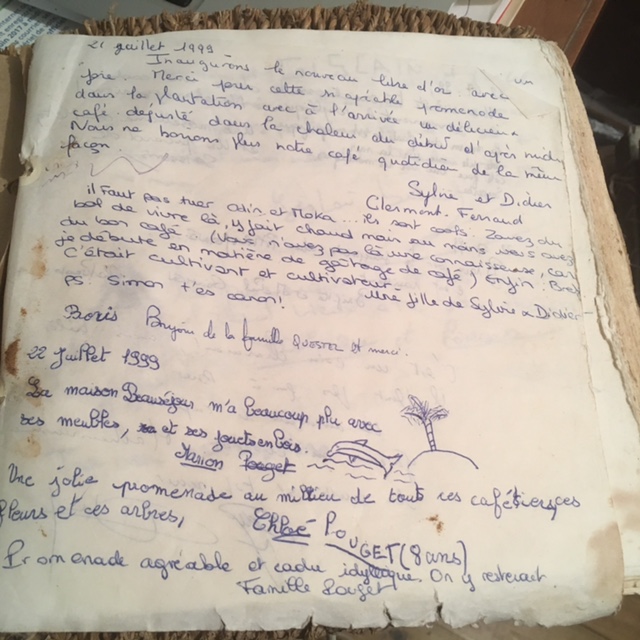 21 juillet 1999
Inaugurons le nouveau livre d'or avec un
joie. Merci pour cette si agréable promenade
dans la plantation avec à l'arrivée un délicieux
café dégusté dans la chaleur du début d'après midi
Nous ne boirons plus notre café quotidien de la même
façon.
Sylvie et Didier
Clermont. Ferrand
il faut pas tuer Odin et Moka... ils sont cools. Zavez du
bol de vivre là, il fait chaud mais au moins, vous avez
du bon café (vous n'avez pas là une connaisseuse, car
je débute en matière de goûtage de café) Enfin! Bref
C'était cultivant et cultivateur.
Une fille de Sylvie & Didier
PS: Simon t'es canon!
Boris Bonjour de la famille QUESTEL et merci.
22 Juillet 1999
La maison Beauséjour m'a beaucoup plu avec
ses meubles, et ses jouets en bois.
Marion Pouget
Une jolie promenade au milieu de tout ces caféiers, ces
fleurs et ces arbres,
Chloé POUGET (8 ans)
Promenade agréable et cadre idyllique. On y resterait.
Famille Pouget